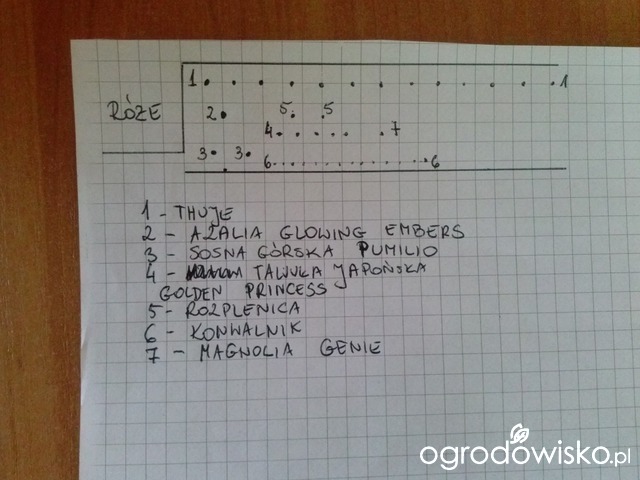 1 1
RÓŻE 2 5 5
4 7
3 3 6 6
1 - THUJE
2 - AZALIA GLOWING EMBERS
3 - SOSNA GÓRSKA PUMILIO
4 - TAWUŁA JAPOŃSKA
GOLDEN PRINCESS
5 - ROZPLENICA
6 - KONWALNIK
7 - MAGNOLIA GENIE
ogrodowisko.pl